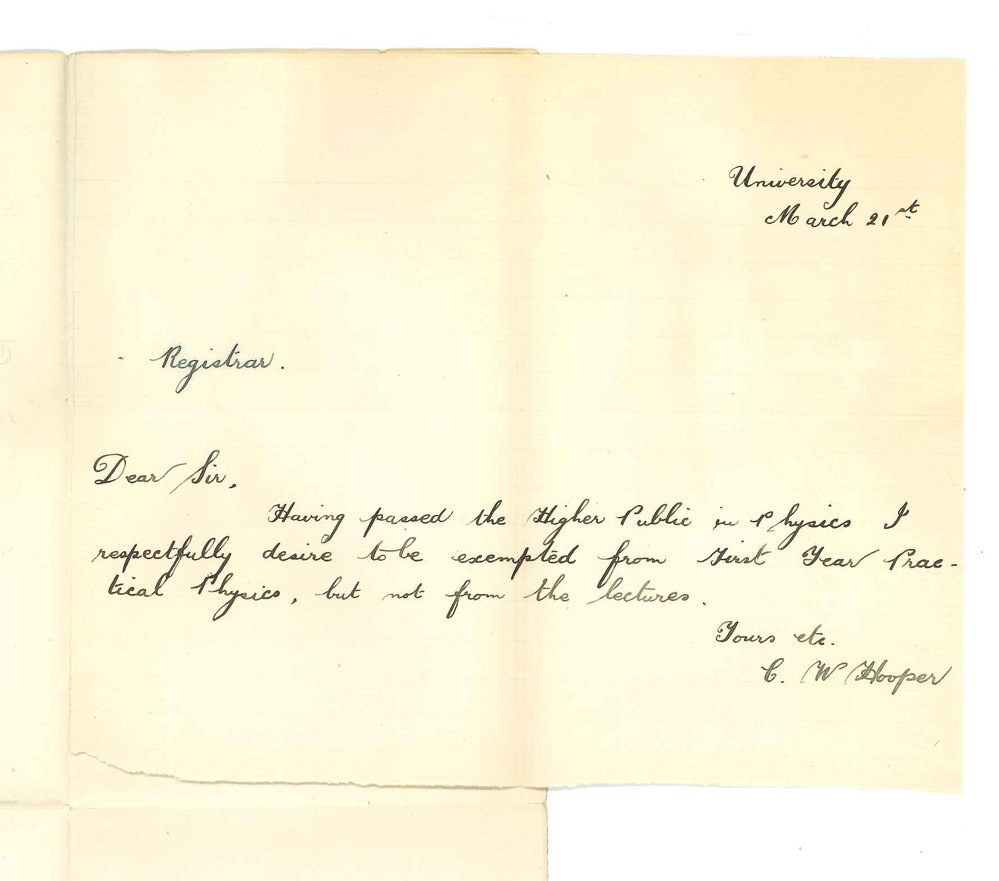 University
March 21st
Registrar.
Dear Sir,
Having passed the Higher Public in Physics I
respectfully desire to be exempted from First Year Prac-
tical Physics, but not from the lectures.
Yours etc.
C. W Hooper